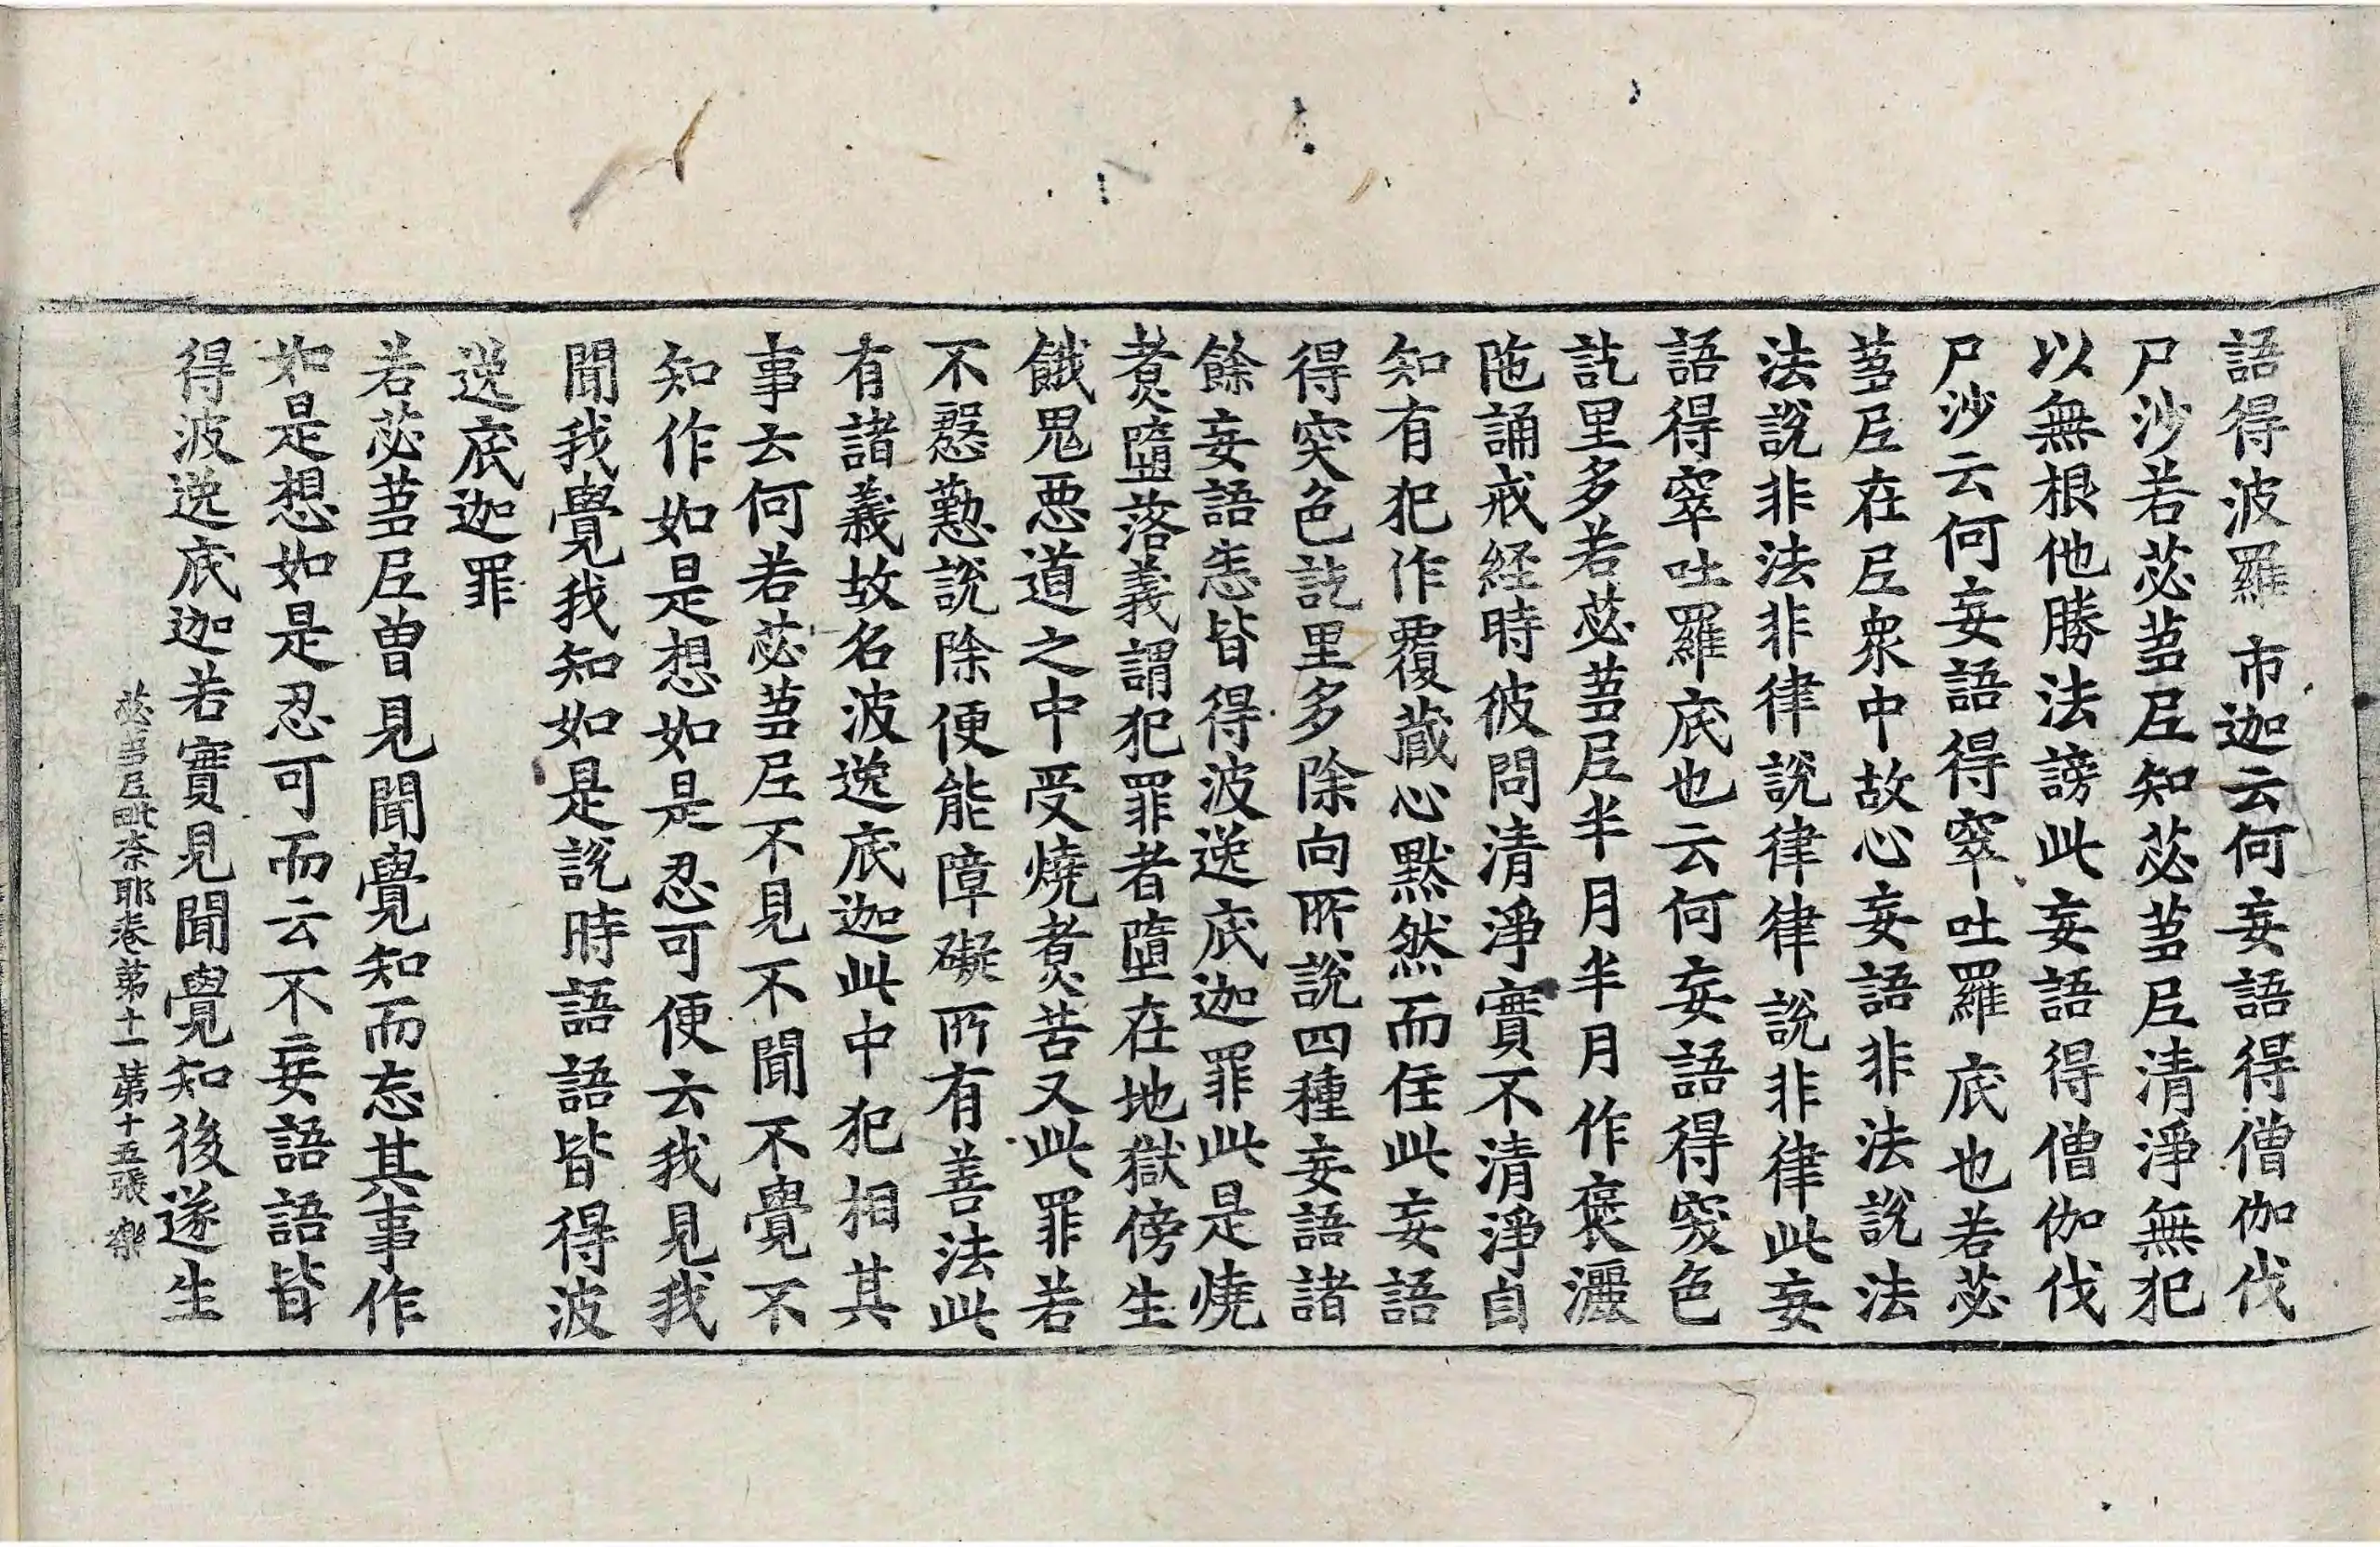 語得波羅市迦云何妄語得僧伽伐
尸沙若苾芻尼知苾芻尼清淨無犯
以無根他勝法謗此妄語得僧伽伐
尸沙云何妄語得窣吐羅底也若苾
芻尼在尼衆中故心妄語非法說法
法說非法非律說律律說非律此妄
語得窣吐羅底也云何妄語得突色
訖里多若苾芻尼半月半月作褒灑
陁誦戒経時彼問清淨實不清淨自
知有犯作覆藏心默然而住此妄語
得突色訖里多除向所說四種妄語諸
餘妄語悉皆得波逸底迦罪此是燒
煑墮落義謂犯罪者墮在地獄傍生
餓鬼惡道之中受燒煑苦又此罪若
不慇懃說除便能障礙所有善法此
有諸義故名波逸底迦此中犯相其
事云何若苾芻尼不見不聞不覺不
知作如是想如是忍可便云我見我
聞我覺我知如是說時語語皆得波
逸底迦罪
若苾芻尼曾見聞覺知而忘其事作
如是想如是忍可而云不妄語語皆
得波逸底迦若實見聞覺知後遂生
苾芻尼毗奈耶卷第十一 第十五張 樂